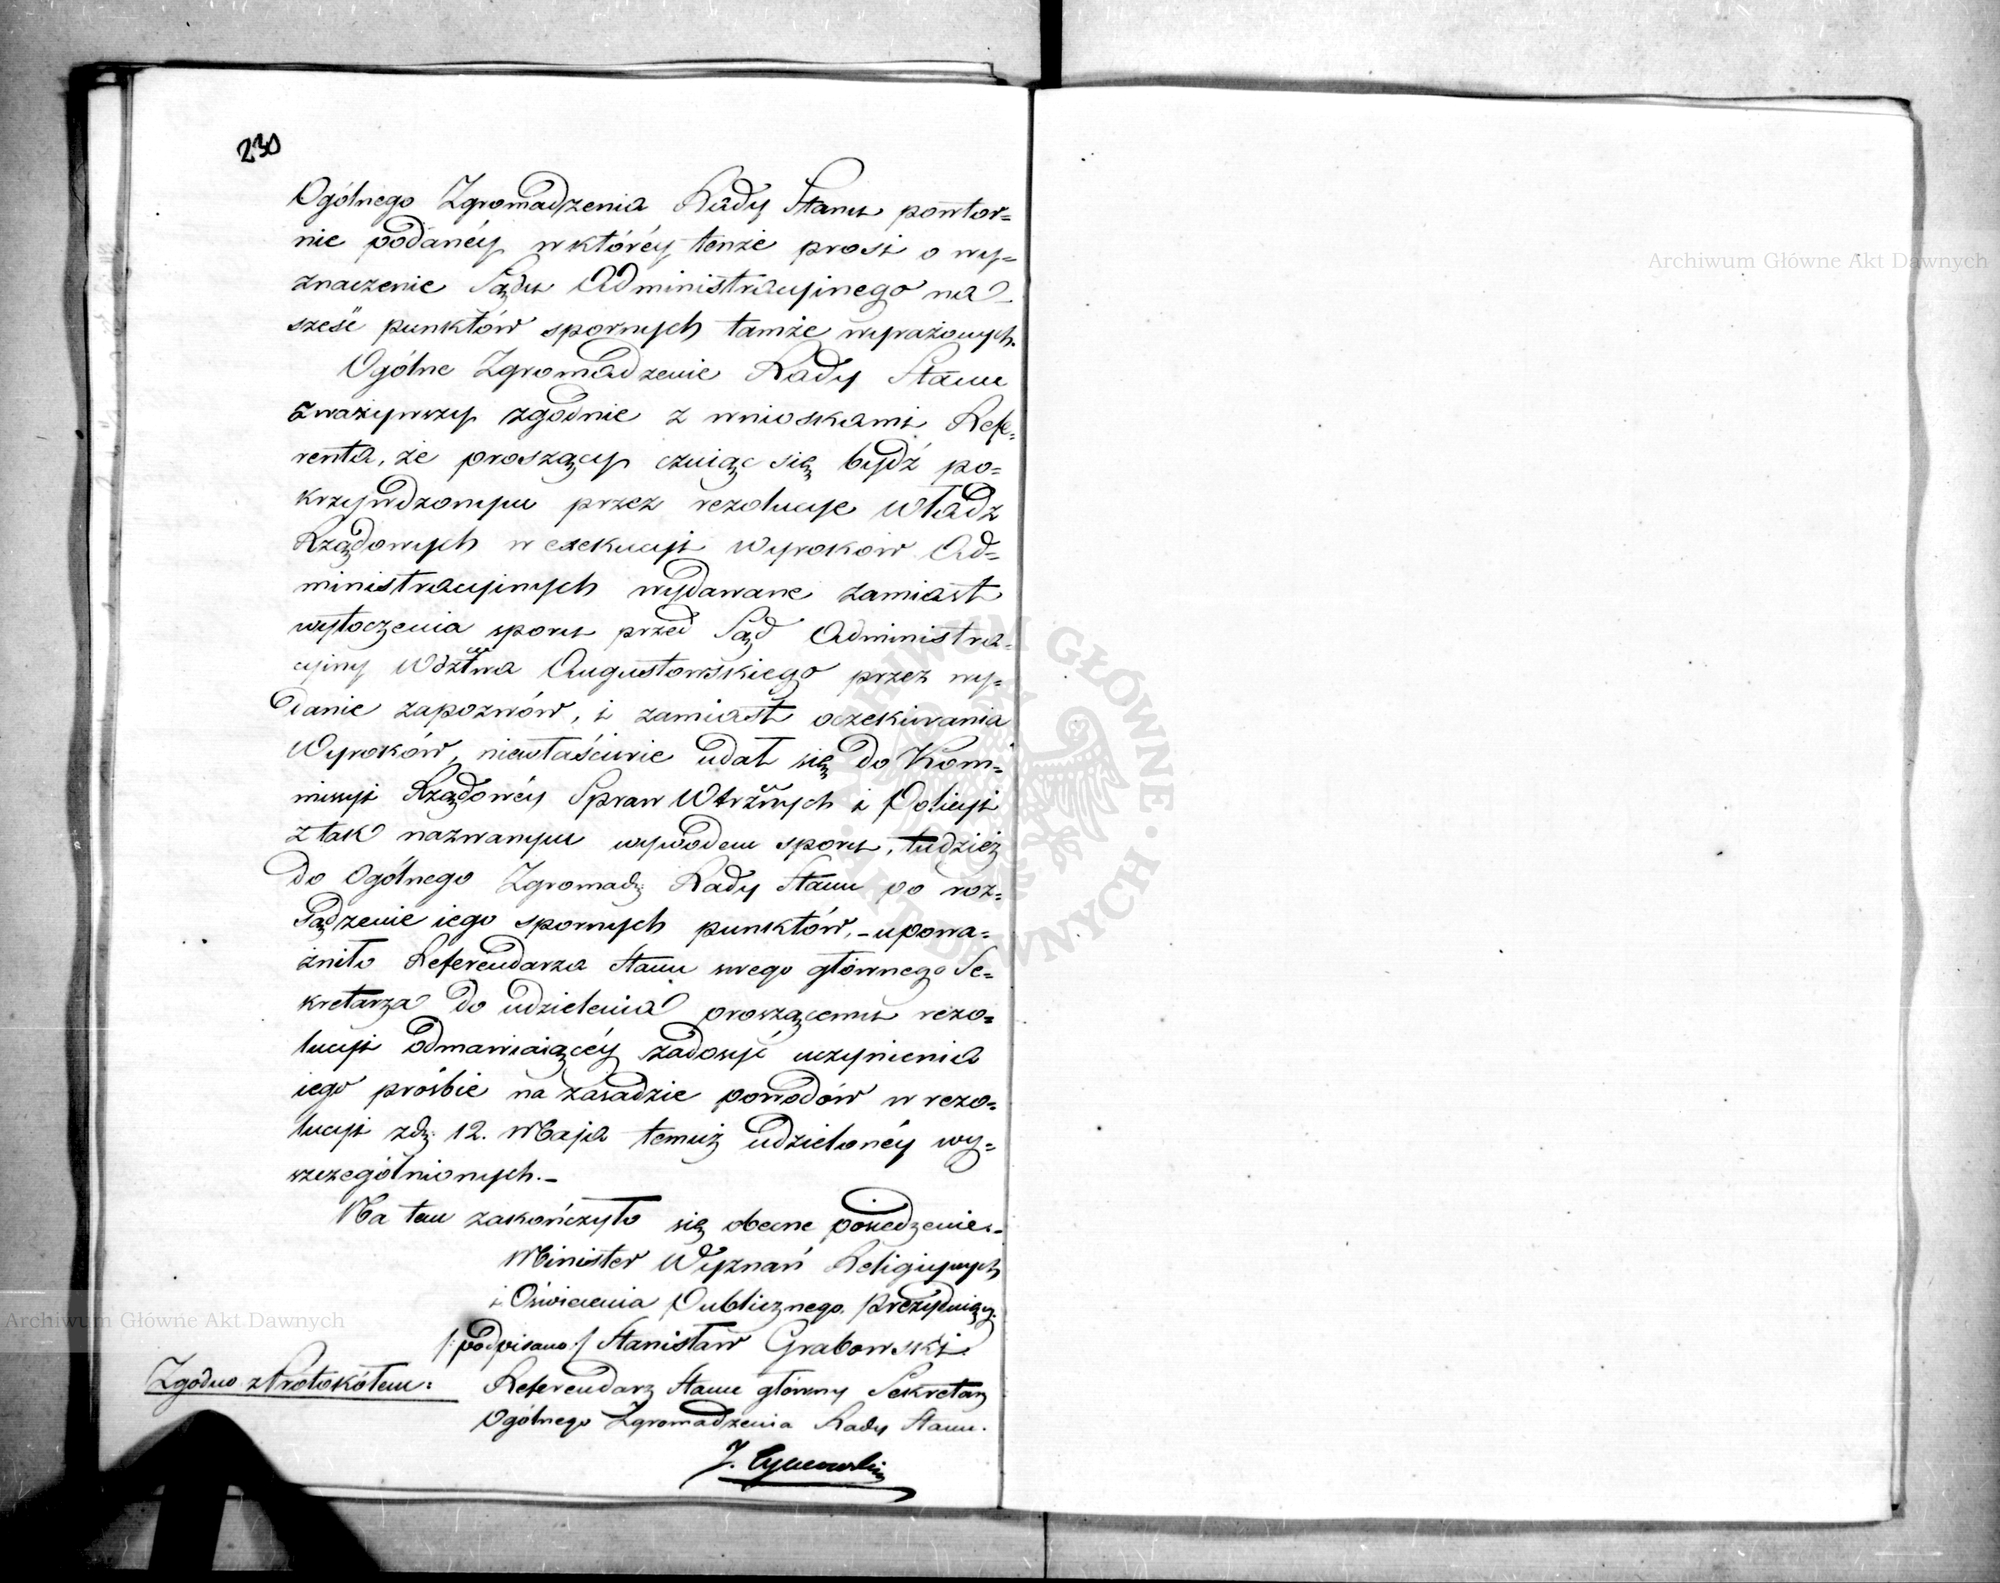 230
Ogólnego Zgromadzenia Rady Stanu powtor=
nie podanéy w któréy tenże prosi o wy=
znaczenie Sądu Administracyinego na
sześć punktów spornych tamże wyrażonych.
Ogólne Zgromadzenie Rady Stanu
zważywszy zgodnie z wnioskami Refe=
renta, że proszący czuiąc się bydź po=
krzywdzonym przez rezolucye Władz
Rządowych w exekucyi Wyroków Ad=
ministracyinych wydawane zamiast
wytoczenia sporu przed Sąd Administra=
cyiny Wdztwa Augustowskiego przez wy=
danie zapozwów, i zamiast oczekiwania
Wyroków, niewłaściwie udał się do Kom=
missyi Rządowéy Spraw Wtrznych i Policyi
z tak nazwanym wywodem sporu, tudzież
do Ogólnego Zgromadz: Rady Stanu po roz=
sądzenie iego spornych punktów, - upowa=
żniło Referendarza Stanu swego głównego Se=
kretarza do udzielenia proszącemu rezo=
lucyi odmawiaiącéy zadosyć uczynienia
iego prośbie na zasadzie powodów w rezo=
lucyi z dn: 12. Maja temuż udzielonéy wy=
szczególnionych.-
Na tem zakończyło się obecne posiedzenie.-
Minister Wyznań Religiynych
i Oświecenia Publicznego prezyduiący.
/:podpisano:/ Stanisław Grabowski
Zgodno z Protokółem: Referendarz Stanu główny Sekretarz
Ogólnego Zgromadzenia Rady Stanu.
J.
Archiwum Główne Akt Dawnych
Archiwum Główne Akt Dawnych
ARCHIWUM GŁÓWNE AKT DAWNYCH